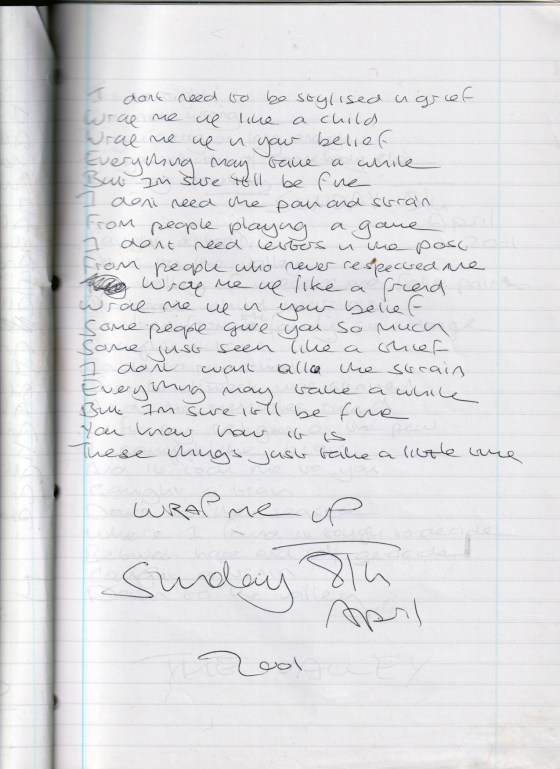 I dont need to be stylised in grief
Wrap me up like a child
Wrap me up in your belief
Everything may take a while
But Im sure itll be fine
I dont need the pain and strain
From people playing a game
I dont need letters in the post
From people who never respected me
Wrap me up like a friend
Wrap me up in your belief
Some people give you so much
Some just seem like a thief
I dont want all the strain
Everything may take a while
But Im sure itll be fine
You know how it is
These things just take a little time
WRAP ME UP
Sunday 8th
April
2001